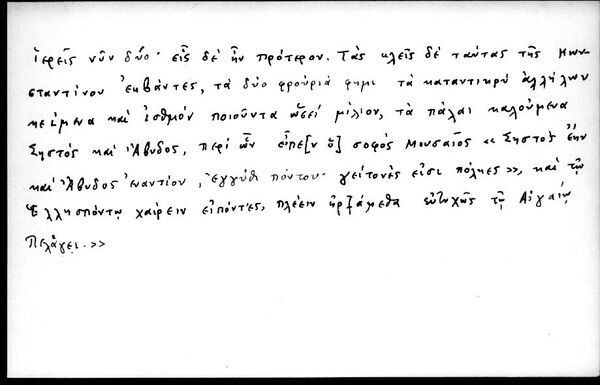 ἱερεῖς νῦν δύο· εἷς δὲ ἦν πρότερον. Τὰς κλεῖς δὲ ταύτας τῆς Κων-
σταντίνου ἐκβάντες, τὰ δύο φρούριά φημι τὰ καταντικρὺ ἀλλήλων
κείμενα καὶ ἰσθμὸν ποιοῦντα ὡσεὶ μίλιον, τὰ πάλαι καλούμενα
Σηστὸς καὶ Ἄβυδος, περὶ ὧν εἶπε[ν ὁ] σοφὸς Μουσαῖος « Σηστὸς ἔην
καὶ Ἄβυδος ἐναντίον, ἐγγύθι πόντου· γείτονές εἰσι πόληες », καὶ τῷ
Ἑλλησπόντῳ χαίρειν εἰπόντες, πλέειν ἠρξάμεθα εὐτυχῶς τῷ Αἰγαίῳ
Πελάγει. »